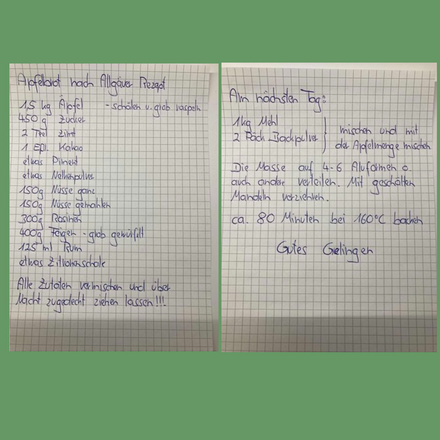 Apfelbrot nach Allgäuer Rezept
1,5 kg Äpfel - schälen u. grob raspeln
450 g Zucker
2 Teel Zimt
1 Eßl. Kakao
etwas Piment
etwas Nelkenpulver
150g Nüsse ganz
150g Nüsse gemahlen
300g Rosinen
400g Feigen - grob gewürfelt
125 ml Rum
etwas Zitronenschale
Alle Zutaten vermischen und über
Nacht zugedeckt ziehen lassen!!!
Am nächsten Tag:
1kg Mehl
2 Päck. Backpulver } mischen und mit
der Apfelmenge mischen
Die Masse auf 4-6 Aluformen o.
auch andere verteilen. Mit geschälten
Mandeln verziehren.
ca. 80 Minuten bei 160°C backen
Gutes Gelingen